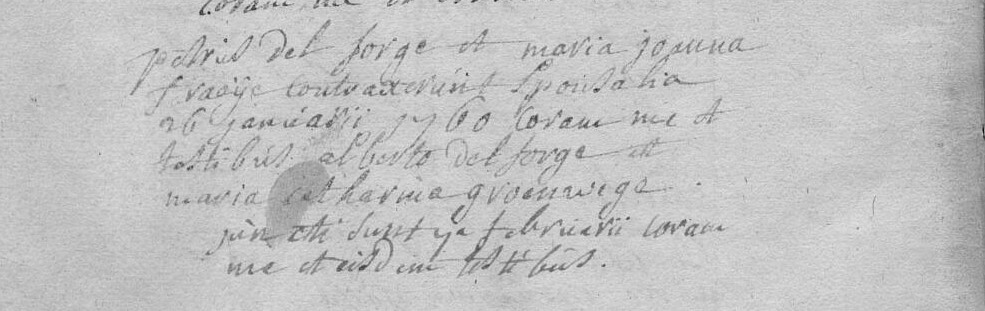 coram me et
petrus del forge et maria joanna
fraeije contraxerunt sponsalia
26 januarii 1760 coram me et
testibus alberto del forge et
maria catharina groenwege
juncti sunt februarii coram
me et eisdem testibus.